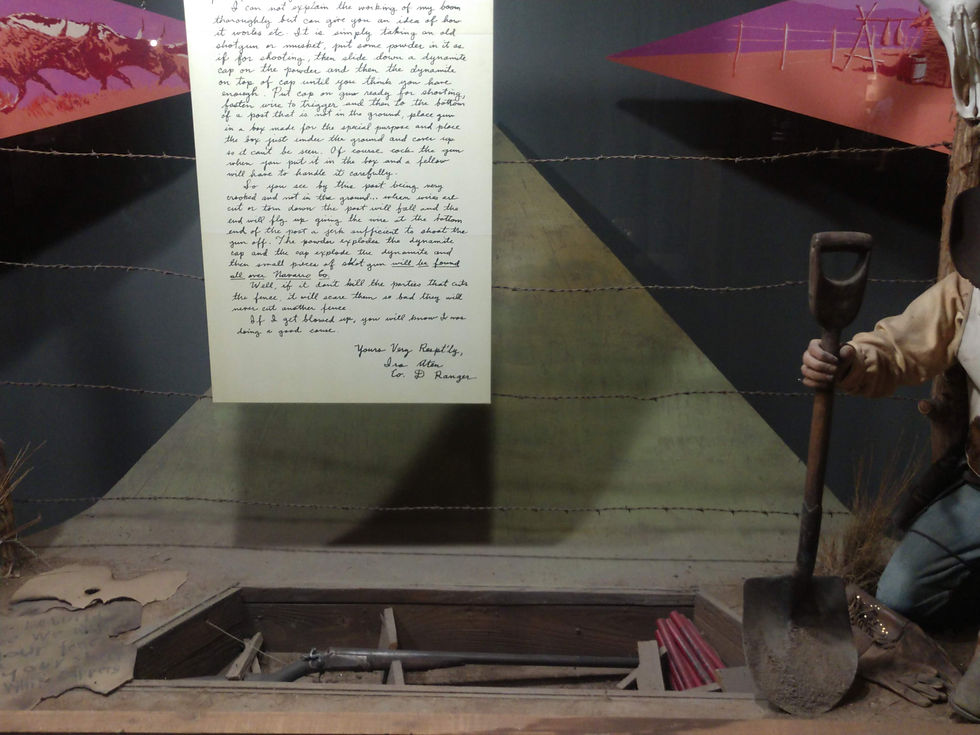 I can not explain the working of my boom
thoroughly but can give you an idea of how
it works etc. It is simply taking an old
shotgun or musket, put some powder in it as
if for shooting, then slide down a dynamite
cap on the powder and then the dynamite
on top of cap until you think you have
enough. Put cap on gun ready for shooting,
fasten wire to trigger and then to the bottom
of a post that is not in the ground, place gun
in a box made for the special purpose and place
the box just under the ground and cover up
so it can't be seen. Of course cock the gun
when you put it in the box and a fellow
will have to handle it carefully.
So you see by this post being very
crooked and not in the ground... when wires are
cut or torn down the post will fall and the
end will fly up giving the wire at the bottom
end of the post a jerk sufficient to shoot the
gun off. The powder explodes the dynamite
cap and the cap explode the dynamite and
then small pieces of shot gun will be found
all over Navarro Co.
Well, if it don't kill the parties that cuts
the fence, it will scare them so bad they will
never cut another fence
If I get blowed up, you will know I was
doing a good cause.
Yours Very Respt'ly,
Ira Aten
Co. D Ranger
your fence